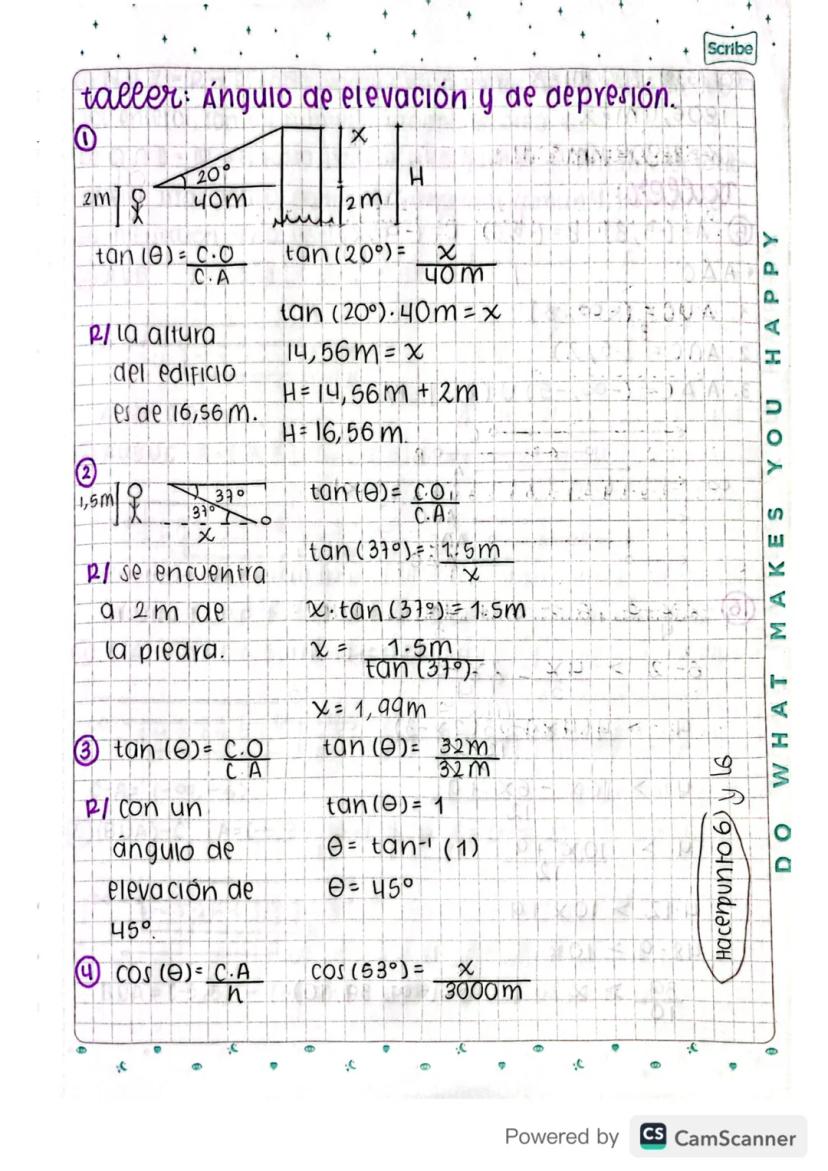 Scribe
taller: Ángulo de elevación y de depresión.
1
20°
40m
2m
x
2m
H
tan (θ) = C.O / C.A
tan (20°) = x / 40m
tan (20°) · 40m = x
14,56m = x
H = 14,56m + 2m
H = 16,56 m.
R/ la altura
del edificio
es de 16,56 m.
2
1,5m
37°
37°
x
tan (θ) = C.O. / C.A.
tan (37°) = 1.5m / x
x · tan (37°) = 1.5m
x = 1.5m / tan (37°)
x = 1,99m
R/ se encuentra
a 2m de
la piedra.
3 tan (θ) = C.O / C A
tan (θ) = 32m / 32m
tan (θ) = 1
θ = tan⁻¹ (1)
θ = 45°
R/ con un
ángulo de
elevación de
45°.
4 cos (θ) = C.A / h
cos (53°) = x / 3000m
Hacer punto 6) y 16
DO WHAT MAKES YOU HAPPY
Powered by CS CamScanner